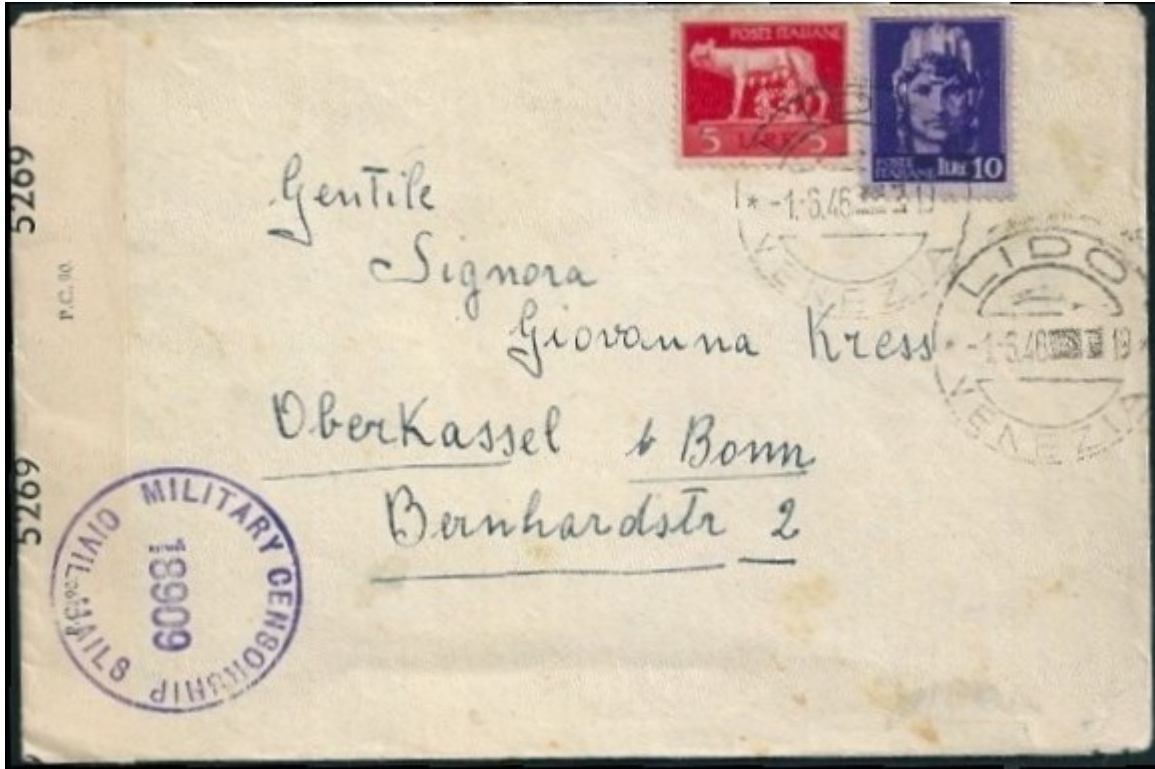 POSTE ITALIANE
5 LIRE 5
POSTE
ITALIANE LIRE 10
* -1.6.46
VENEZIA
LIDO
-1.6.46 19
VENEZIA
Gentile
Signora
Giovanna Kress
Oberkassel b Bonn
Bernhardstr 2
5269
P.C. 90.
5269
MILITARY CENSORSHIP
CIVIL MAILS
18609